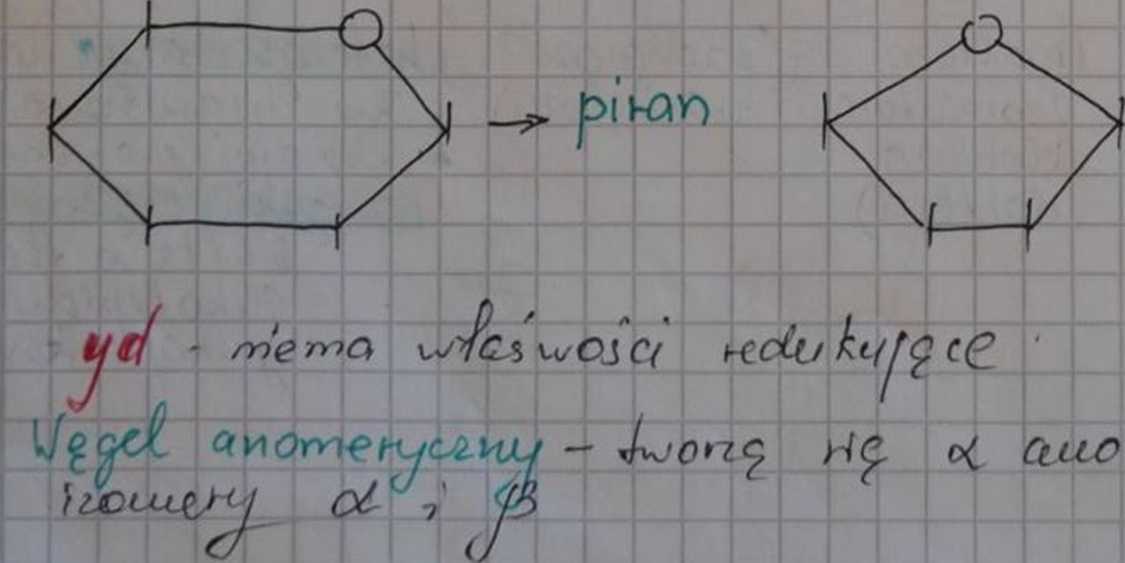 → piran
yd - niema właśwości redukujące
Węgel anomeryczny - tworzą się α ano
izomery α i β